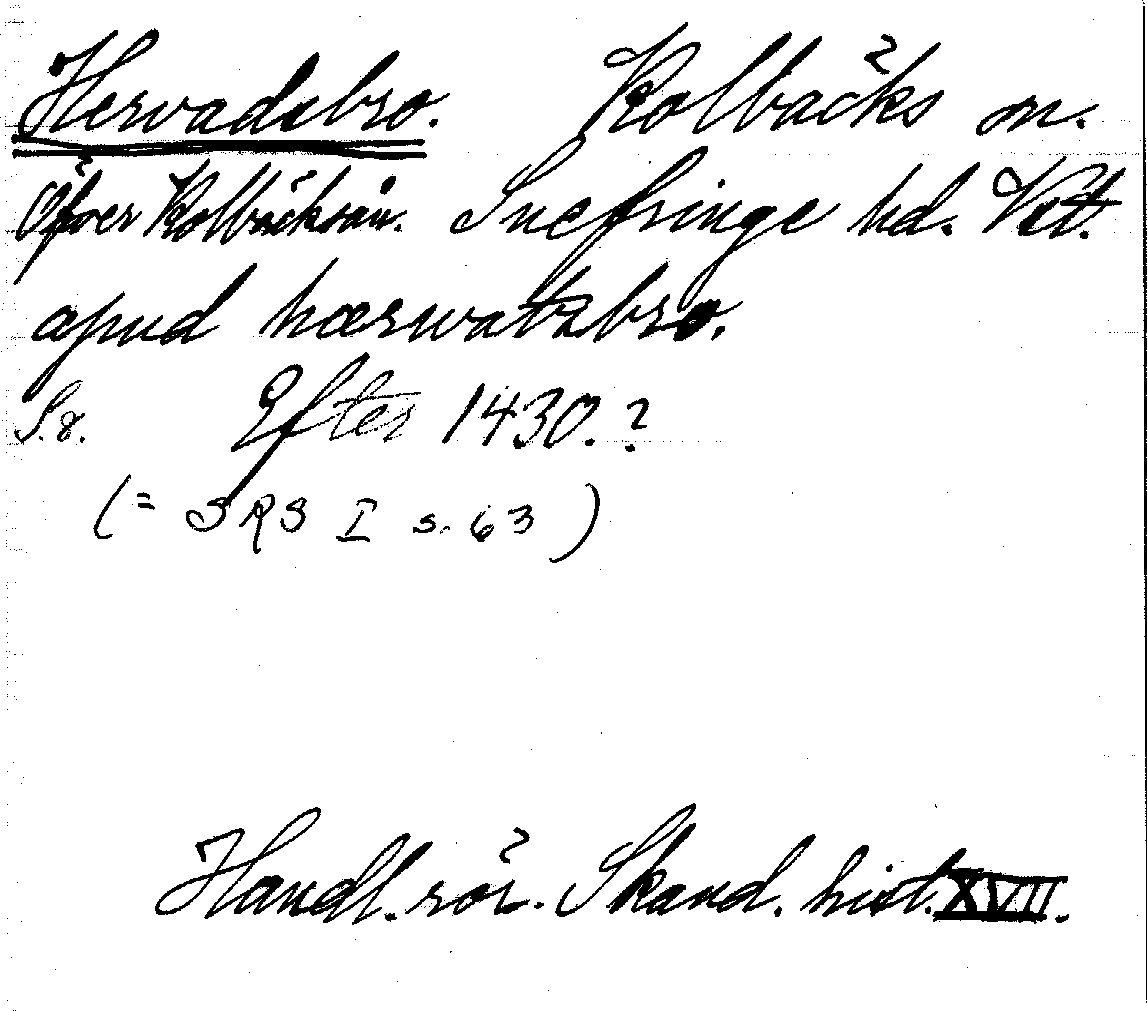 Hervadsbro. Kolbäcks sn.
Öfver Kolbäcksån. Snefringe hd. Vstt.
apud hærwatzbro.
S. 8. Efter 1430.?
(= SRS I s. 63)
Handl. rör. Skand. hist. XVII.